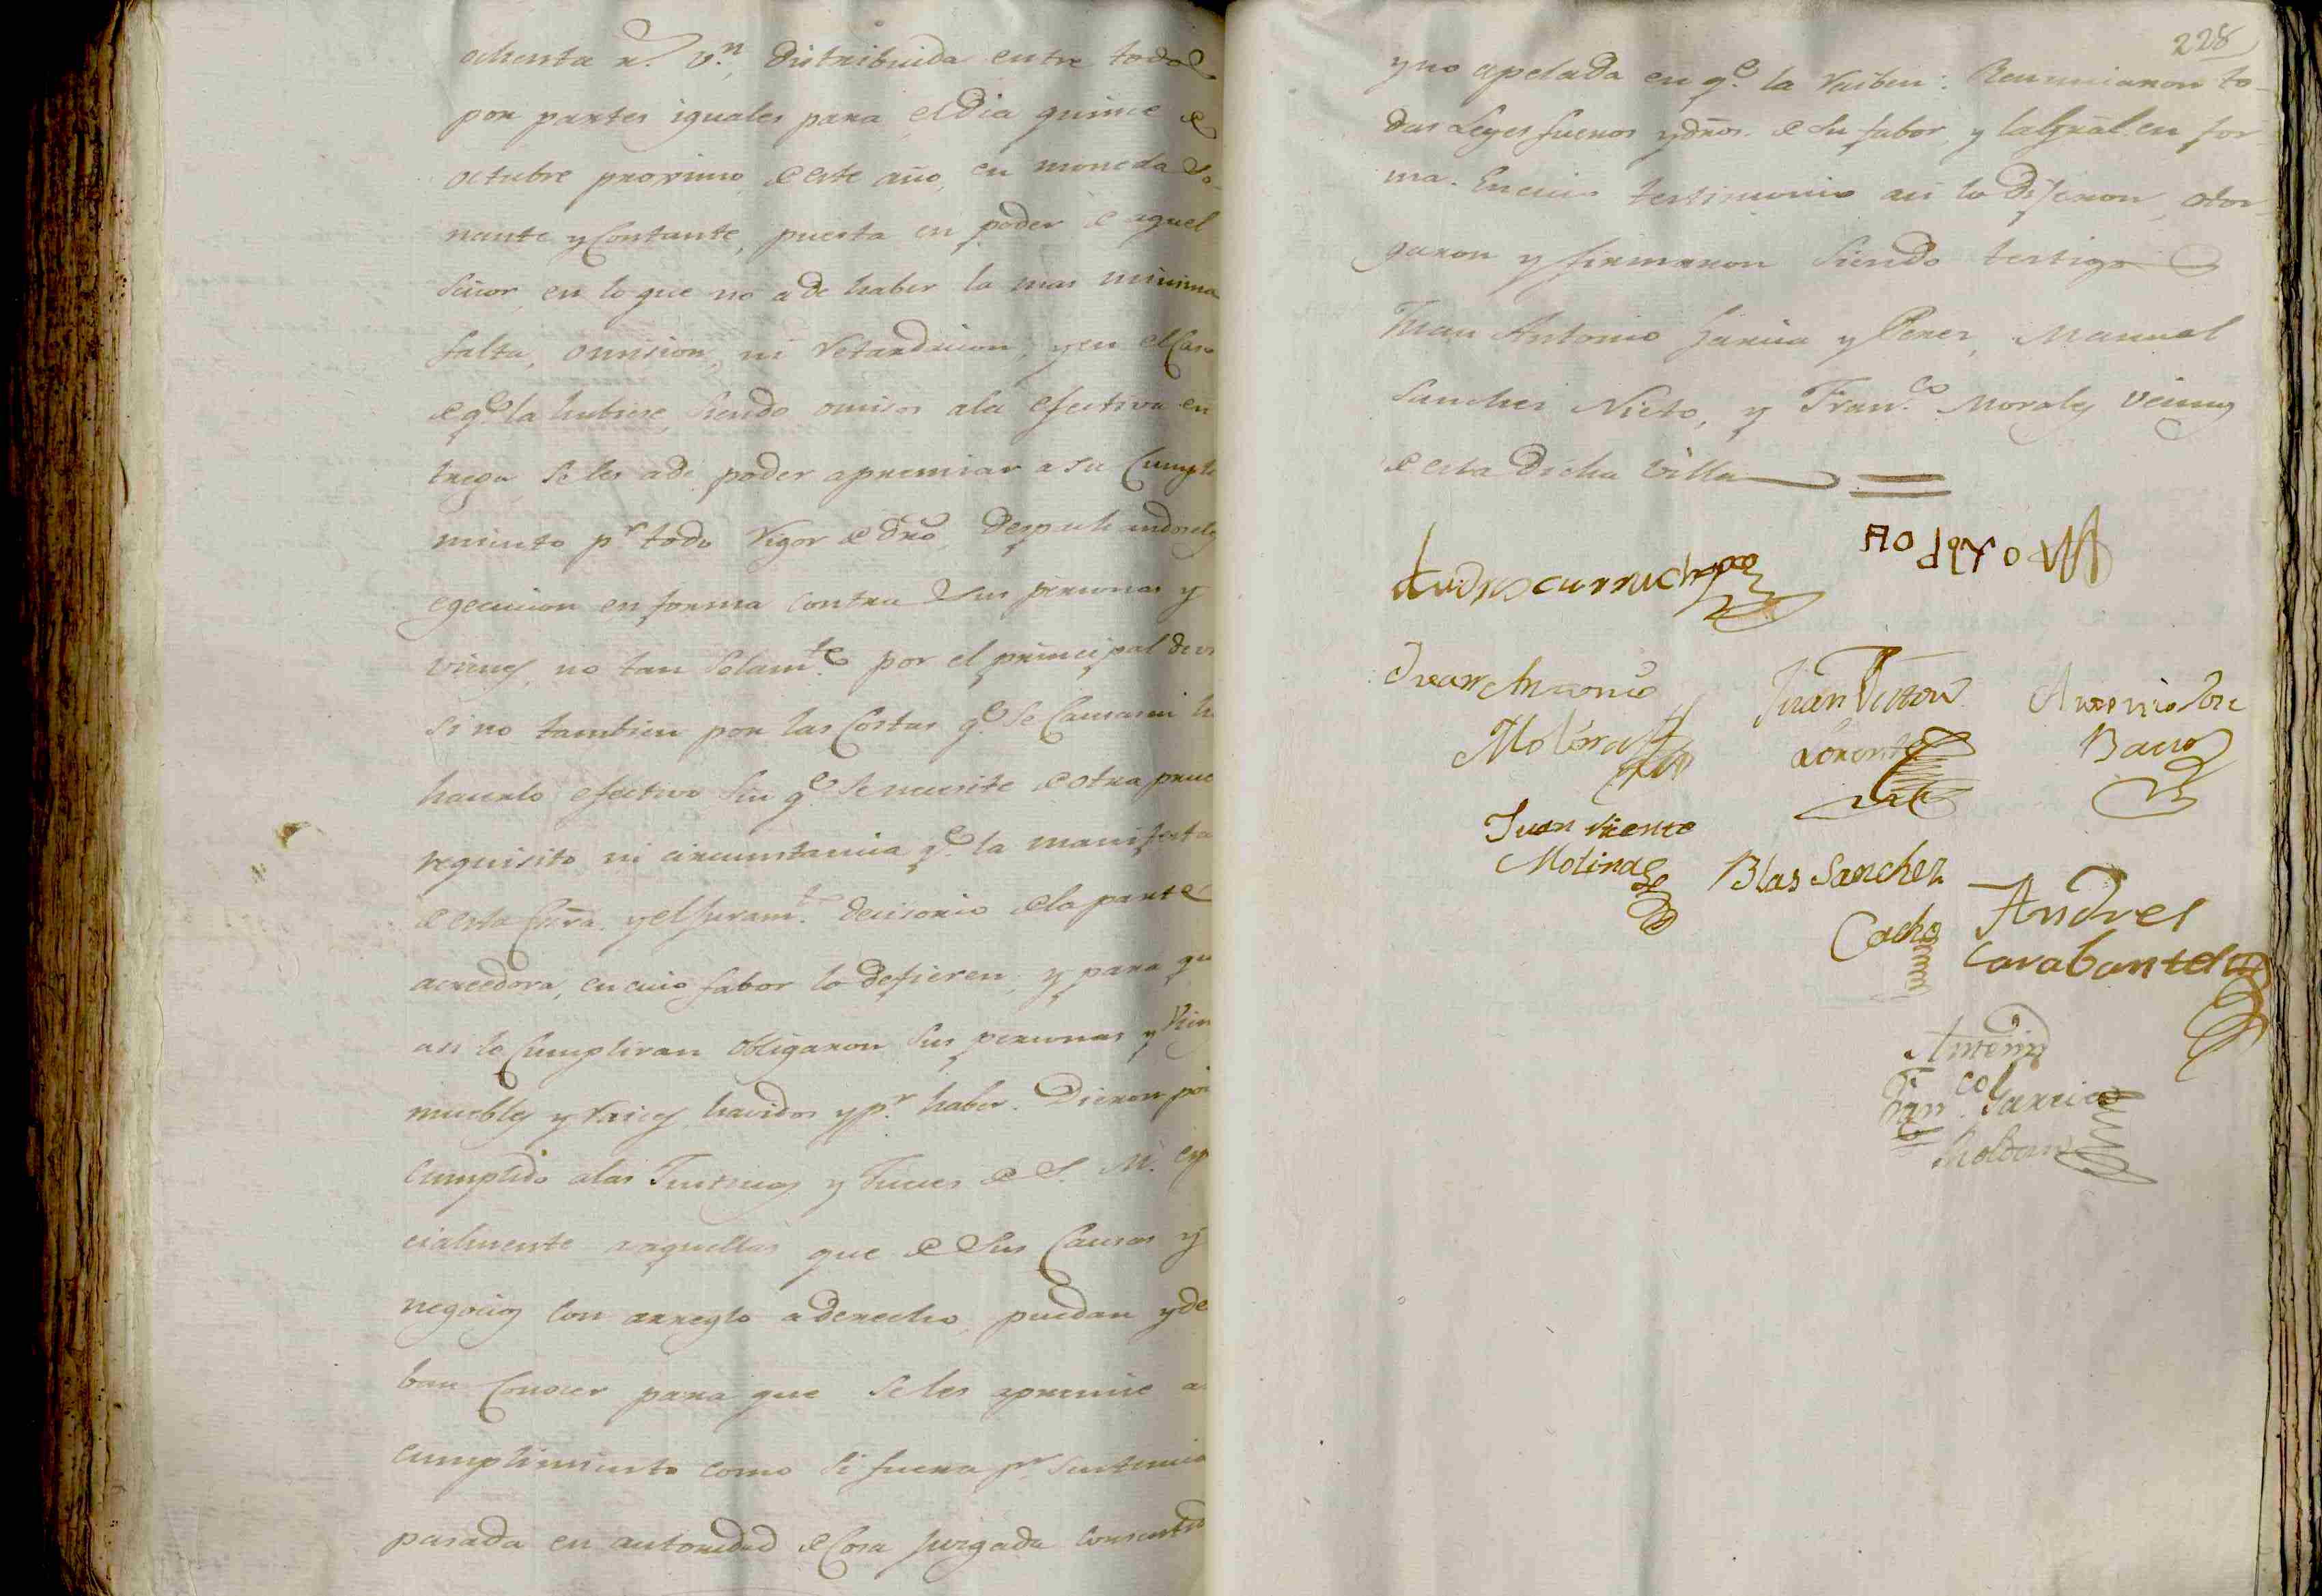 ochenta r.^s v.^n, distribuida entre todos
por partes iguales para el dia quince de
octubre proximo de este año, en moneda so-
nante y Contante, puesta en poder de aquel
Señor, en lo que no a de haber la mas minima
falta, omision, ni retardacion, y en el Caso
de q.^e la hubiese, Siendo omisos ala efectiva en
trega, Se les a de poder apremiar a su Cumpli
miento p.^r todo rigor de dro, Despachandoseles
egecucion en forma contra Sus personas y
vienes, no tan Solam.^te por el principal devi
Si no tambien por las Costas q.^e Se Causasen h
hacerlo efectivo Sin q.^e Se necesite de otra prue
requisito, ni circunstancia q.^e la manifesta
de esta Esra. y el Juram.^to decisorio de la parte
acreedora, en cuio fabor lo defieren, y para que
asi lo Cumpliran obligaron Sus personas y vien
muebles y raices havidos y p.^r haber. Dieron po
Cumplido alas Justicias y Jueces de S. M. espe
cialmente aaquellas que de Sus Causas y
negocios Con arreglo a derecho, puedan y de
ban Conocer para que Se les apremie a
cumplimiento como Si fuera p.^r Sentencia
pasada en autoridad de Cosa Juzgada Consentida
228
y no apelada en q.^e la reciben: Renunciaron to-
das Leyes fueros y dros. de Su fabor, y la Gral. en for-
ma. En cuio testimonio asi lo Dijeron, otor-
garon y firmaron Siendo testigos
Juan Antonio Garcia y Perez, Manuel
Sanchez Nieto, y Fran.^co Morales vecinos
de esta Dicha Villa
Juan Antonio
Molina
Juan Victor
Lorente
Antonio Jose
Juan Vicente
Molina
Blas Sanchez
Cacho
Andres
Carabantes
Antemi
Fran.^co Garcia
Roldan